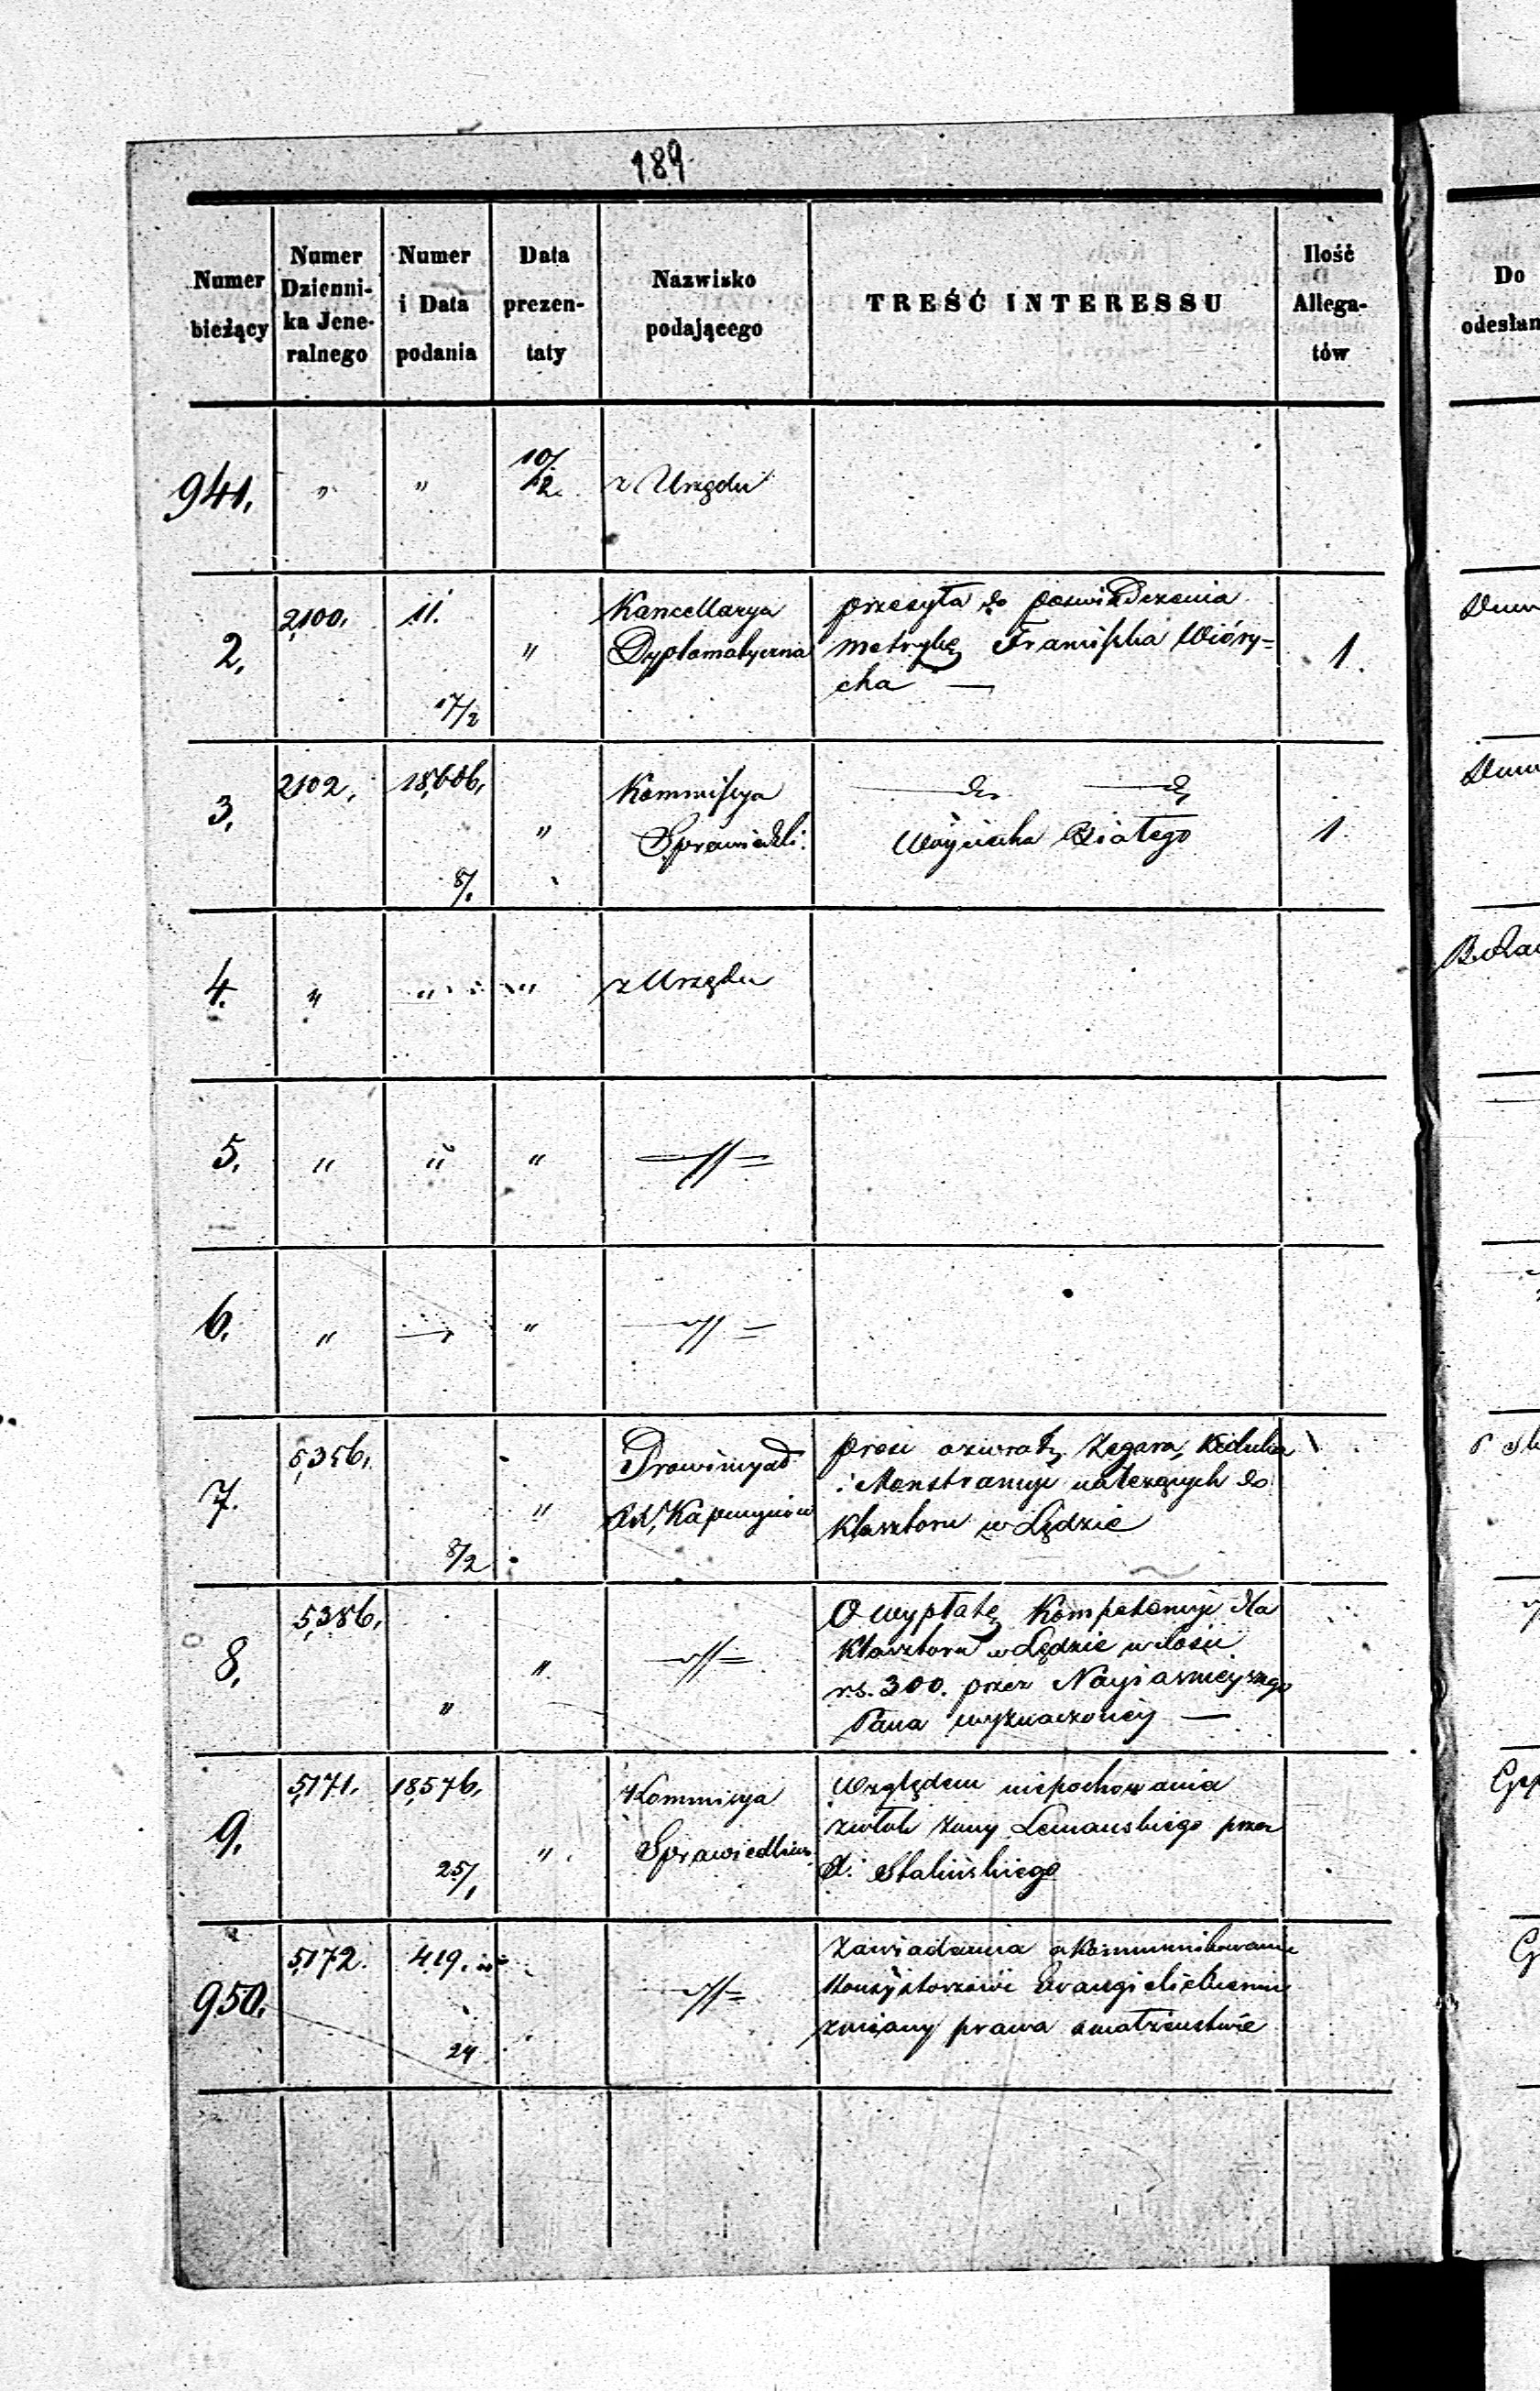 189
Numer bieżący
Numer Dzienni-
ka Jene-
ralnego
Numer i Data podania
Data prezen-
taty
Nazwisko podającego
TREŚĆ INTERESSU
Ilość Allega-
tów
Do
odesłan
941. " " 10/2. z Urzędu
2, 2100. 11. 17/2 " Kancellarya
Dyplomatyczna
przesyła do poświadczenia
metrykę Franciszka Wióry-
cha —
1.
3, 2102, 18,606, 8/1. " Kommissya
Sprawiedli:
do do
Wojciecha Białego
1.
4. " " " z Urzędu
5. " " " —//—
6. " — " —//—
7. 5,356, 8/2 " Prowincyał
Kapucynów
prosi o zwrot Zegara, Kielicha
i Monstrancyi należących do
Klasztoru w Lędzie
8, 5,386, " " —//—
O wypłatę Kompetencyi dla
Klasztoru w Lędzie w ilości
rs. 300. przez Najjaśniejszego
Pana wyznaczonéj —
9. 5,171. 18,576, 25/1 " Kommissya
Sprawiedliw:
Względem niepochowania
zwłok żony Lemańskiego przez
X. Stalińskiego
950. 5,172. 419. 24 —//—
Zawiadamia o kommunikowaniu
Konsystorzowi Evangelickiemu
zmiany prawa o małżeństwie